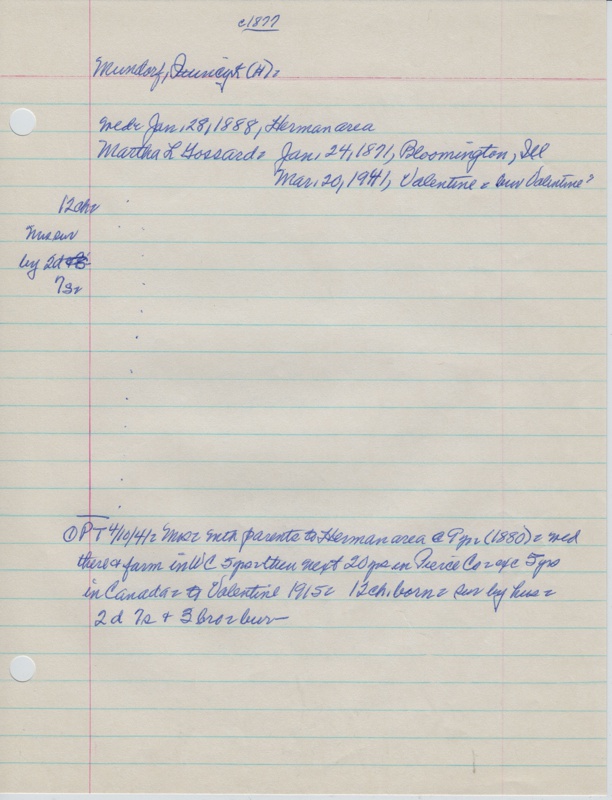 c1877
Mundorf, (H)=
wed= Jan. 28, 1888, Herman area
Martha L Gossard= Jan. 24, 1871, Bloomington, Ill
Mar. 20, 1941, Valentine = bur Valentine?
12ch=
Mrs sur
by 2d
7s=
① PT 4/10/41= Mrs= with parents to Herman area @ 9 yr= (1880)= wed
there & farm in WC 5 yrs then next 20 yrs in Pierce Co= exc 5 yrs
in Canada= to Valentine 1915= 12 ch. born= sur by hus=
2 d 7s & 3 bro= bur—